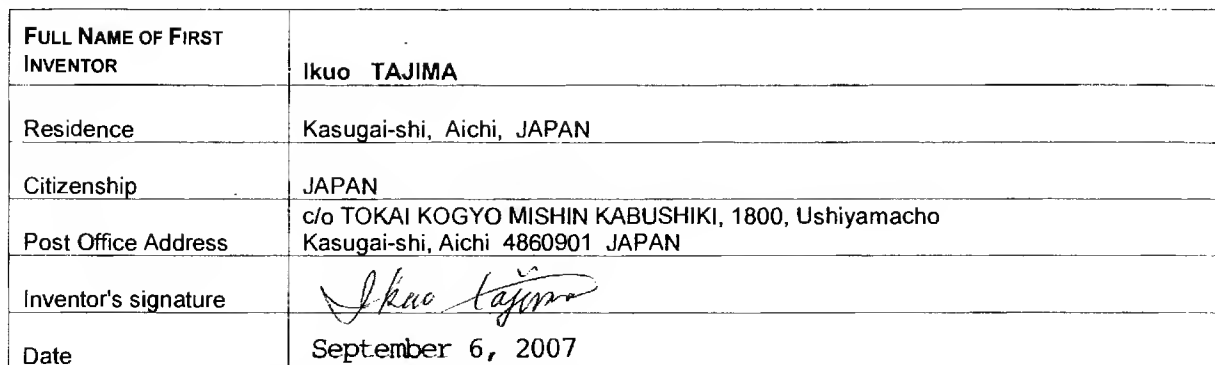 FULL NAME OF FIRST
INVENTOR Ikuo TAJIMA
Residence Kasugai-shi, Aichi, JAPAN
Citizenship JAPAN
c/o TOKAI KOGYO MISHIN KABUSHIKI, 1800, Ushiyamacho
Post Office Address Kasugai-shi, Aichi 4860901 JAPAN
Inventor's signature Ikuo tajima
Date September 6, 2007